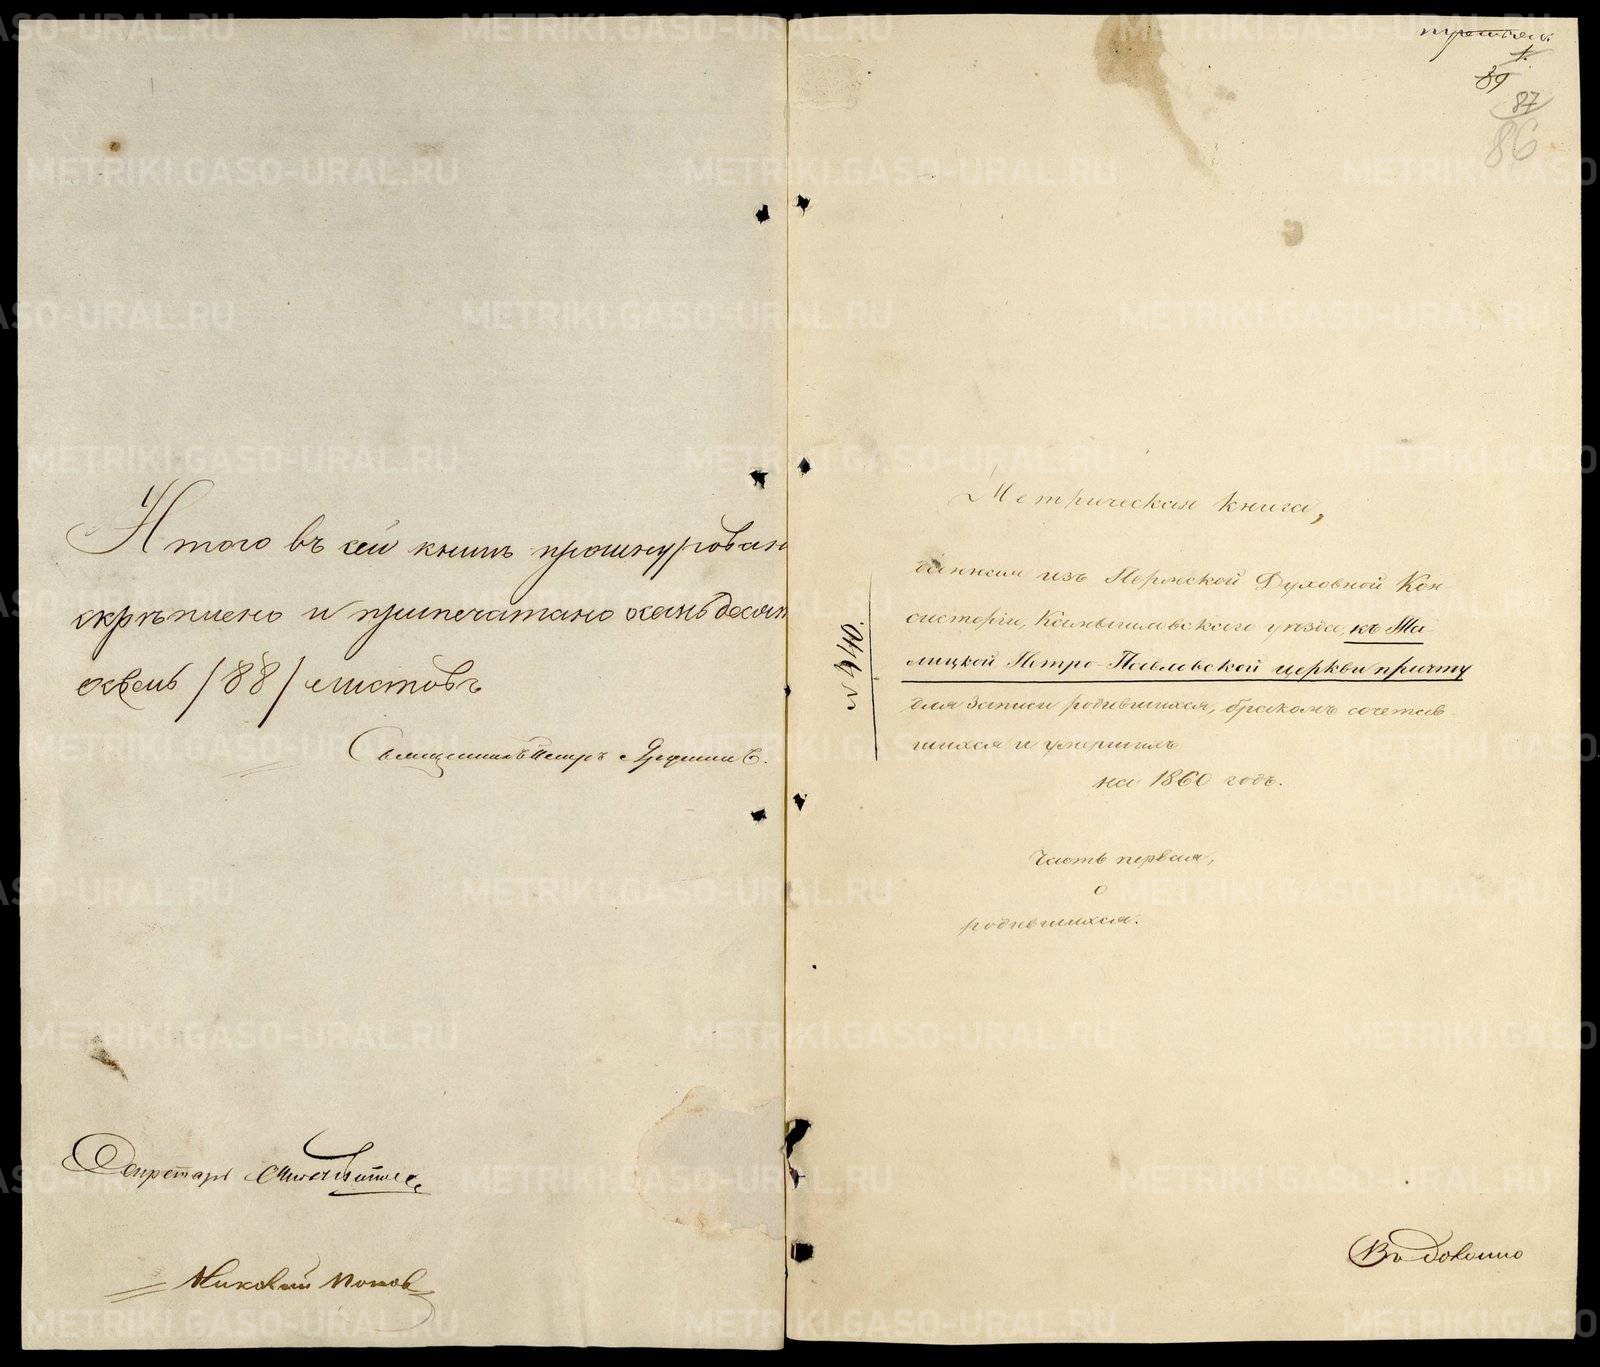 Итого въ сей книгѣ прошнурован
скрѣплено и припечатано осемьдесят
осемь /88/ листовъ
Священникъ Петръ
Секретарь
Николай Поповъ
1.
89
87
86
Метрическая книга,
данная изъ Пермской Духовной Кон-
систоріи, Камышловскаго уѣзда, къ Та-
лицкой Петро-Павловской церкви причту
для записи родившихся, бракомъ сочетав-
шихся и умершихъ
на 1860 годъ.
№ 440.
Часть первая,
о
родившихся.
METRIKI.GASO-URAL.RU